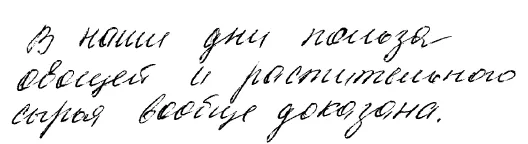 В наши дни польза
овощей и растительного
сырья вообще доказана.